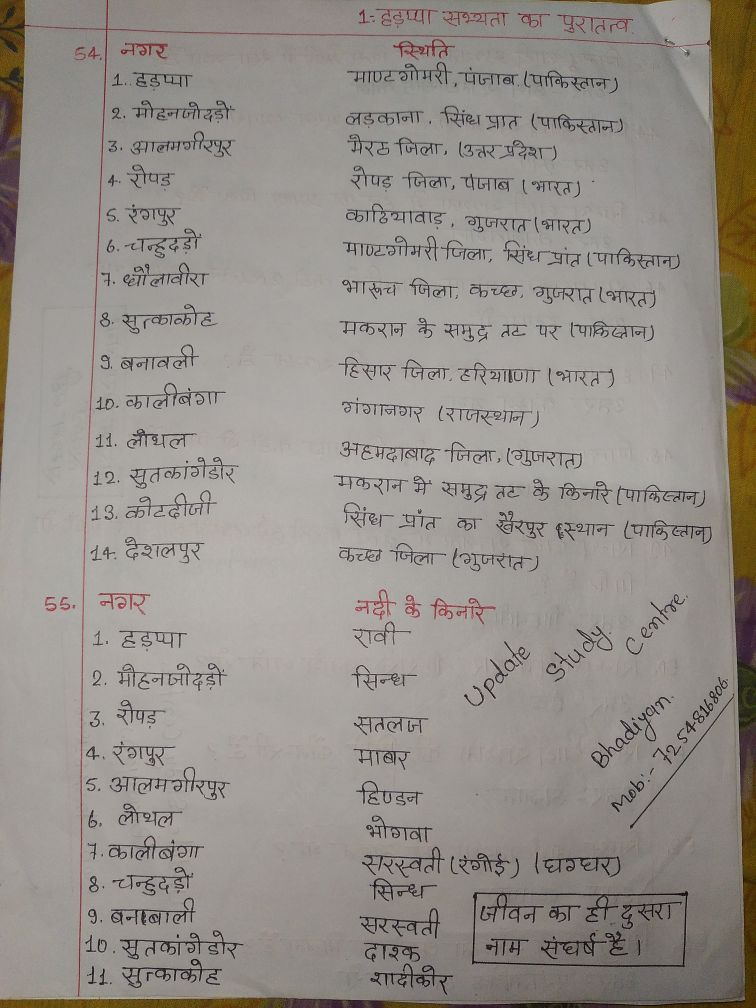 1:- हड़प्पा सभ्यता का पुरातत्व
54. नगर स्थिति
1. हड़प्पा माण्टगोमरी, पंजाब (पाकिस्तान)
2. मोहनजोदड़ो लड़काना, सिंध प्रात (पाकिस्तान)
3. आलमगीरपुर मेरठ जिला, (उत्तर प्रदेश)
4. रोपड़ रोपड़ जिला, पंजाब (भारत)
5. रंगपुर काठियावाड़, गुजरात (भारत)
6. चन्हुदड़ो माण्टगोमरी जिला, सिंध प्रांत (पाकिस्तान)
7. धौलावीरा भारूच जिला, कच्छ, गुजरात (भारत)
8. सुत्काकोह मकरान के समुद्र तट पर (पाकिस्तान)
9. बनावली हिसार जिला, हरियाणा (भारत)
10. कालीबंगा गंगानगर (राजस्थान)
11. लोथल अहमदाबाद जिला, (गुजरात)
12. सुतकांगेडोर मकरान में समुद्र तट के किनारे (पाकिस्तान)
13. कोटदीजी सिंध प्रांत का खैरपुर स्थान (पाकिस्तान)
14. देशलपुर कच्छ जिला (गुजरात)
55. नगर नदी के किनारे
1. हड़प्पा रावी
2. मोहनजोदड़ो सिन्ध
3. रोपड़ सतलज
4. रंगपुर माबर
5. आलमगीरपुर हिण्डन
6. लोथल भोगवा
7. कालीबंगा सरस्वती (रंगोई) (घग्घर)
8. चन्हुदड़ो सिन्ध
9. बनाबाली सरस्वती
10. सुतकांगेडोर दाश्क
11. सुत्काकोह शादीकोर
Update Study Centre
Bhadiyan.
Mob:- 7254816806
जीवन का ही दुसरा
नाम संघर्ष है।